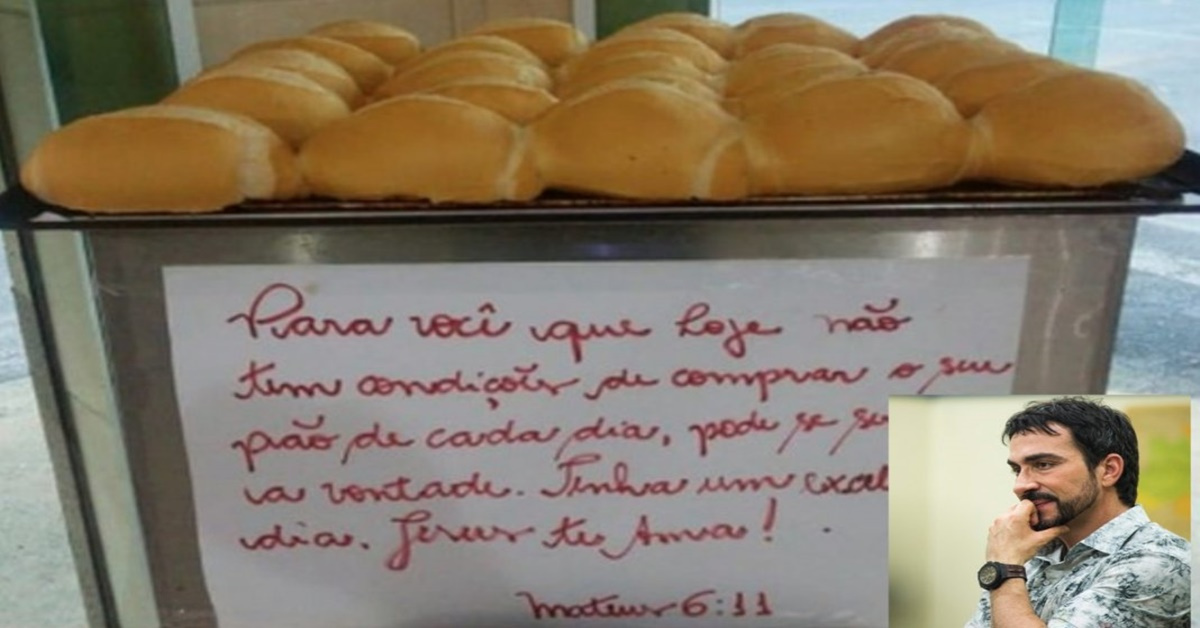 Para você que hoje não
tem condições de comprar o seu
pão de cada dia, pode se
a vontade. Tenha um
dia. Jesus te Ama!
Mateus 6:11